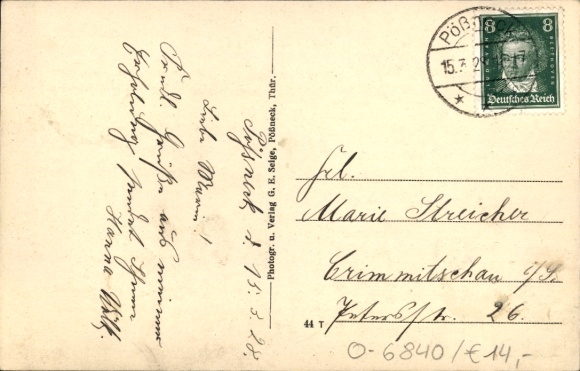 Pößneck d. 15.3.28.
Liebe Marie!
Sendl. Grüße aus meiner
Erholung sendet Ihnen
Hanna
Photogr. u. Verlag G. E. Selge, Pößneck, Thür.
8 8
BEETHOVEN
Deutsches Reich
15.3.28
Frl.
Marie Streicher
Crimmitschau i/S.
Petersstr. 26.
44 T
O-6840/€14,-